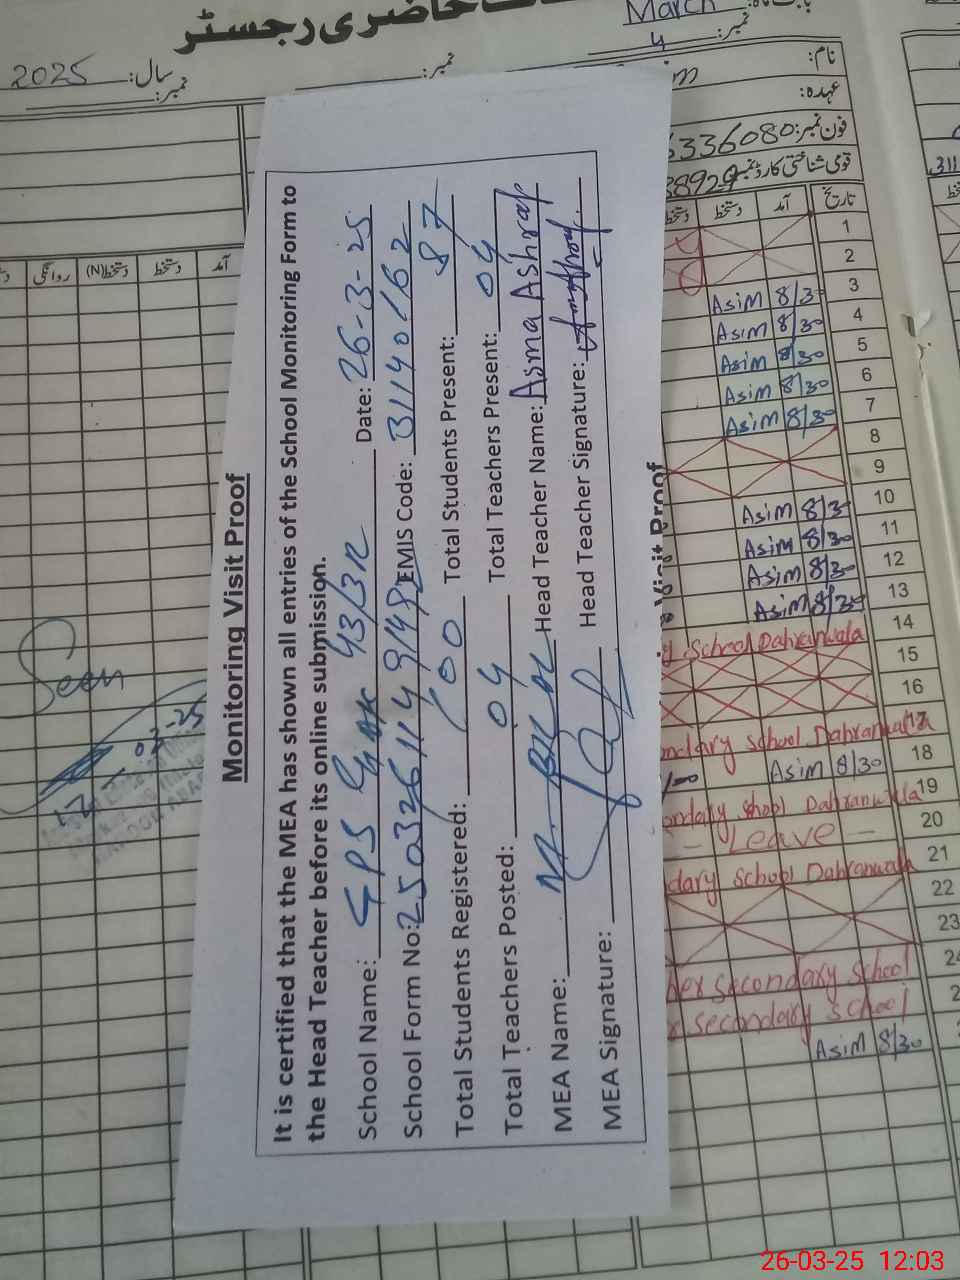 حاضری رجسٹر
March
نمبر: 4
سال: 2025
نمبر:
نمبر:
نام:
عہدہ:
فون نمبر: 6336080
قومی شناختی کارڈ نمبر 38929
تاریخ آمد دستخط دستخط
آمد دستخط دستخط(N) روانگی
Monitoring Visit Proof
It is certified that the MEA has shown all entries of the School Monitoring Form to
the Head Teacher before its online submission.
School Name: GPS 43/3R Date: 26-3-25
School Form No: EMIS Code: 31140162
Total Students Registered: 100 Total Students Present: 87
Total Teachers Posted: 04 Total Teachers Present: 04
MEA Name: Head Teacher Name: Asma Ashraf
MEA Signature: Head Teacher Signature:
Visit Proof
1
2
3 Asim 8/30
4 Asim 8/30
5 Asim 8/30
6 Asim 8/30
7 Asim 8/30
8
9
10 Asim 8/30
11 Asim 8/30
12 Asim 8/30
13 Asim 8/30
14 School Dahranwala
15
16
17 ondary School Dahranwala
18 Asim 8/30
19 ondary School Dahranwala
20 - Leave -
21 dary School Dahranwala
22
23
24 her secondary school
2 r secondary school
Asim 8/30
Seen
311
26-03-25 12:03